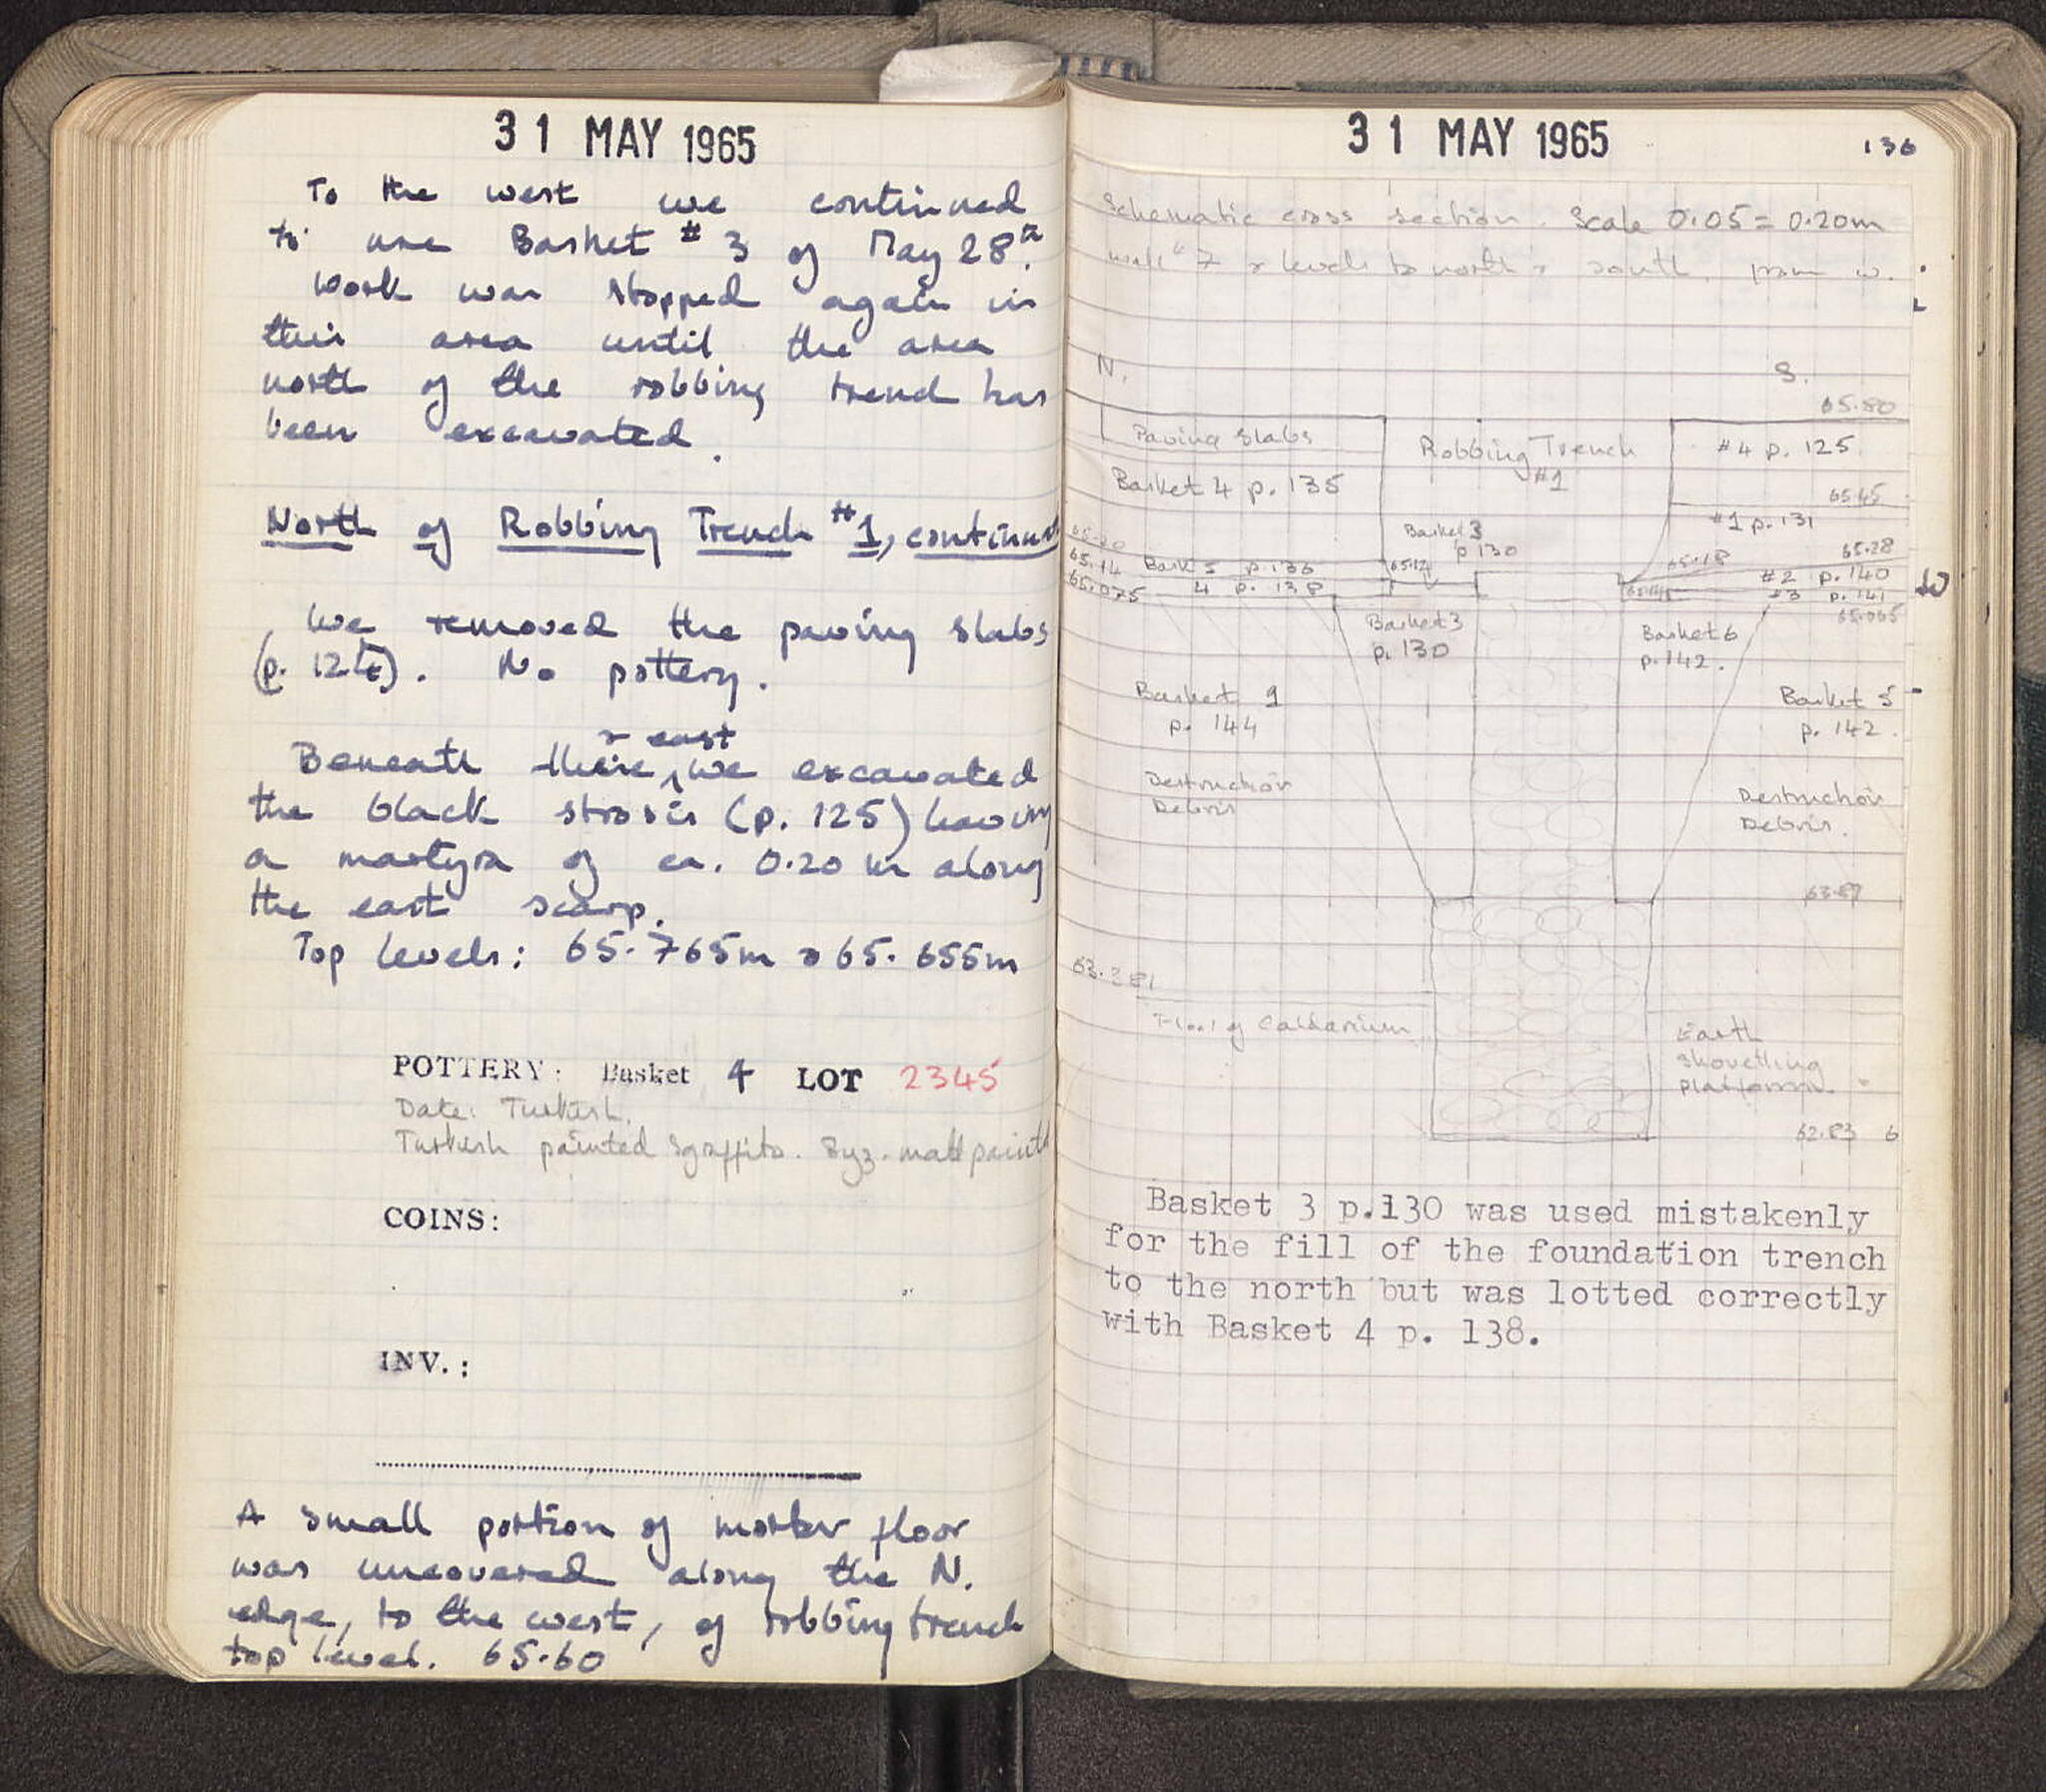 31 MAY 1965
To the west we continued
to use Basket # 3 of May 28th.
Work was stopped again in
this area until the area
north of the robbing trench has
been excavated.
North of Robbing Trench #1, continued
We removed the paving slabs
(p. 124). No pottery.
& east
Beneath these, we excavated
the black strosis (p. 125) leaving
a martyra of ca. 0.20 m along
the east scarp.
Top levels: 65.765m & 65.655m
POTTERY: Basket 4 LOT 2345
Date: Turkish.
Turkish painted sgraffito. Byz. matt painted
COINS:
INV.:
A small portion of mortar floor
was uncovered along the N.
edge, to the west, of robbing trench
top level. 65.60
31 MAY 1965
136
Schematic cross section. Scale 0.05 = 0.20m
wall #7 & levels to north & south, from w.
N.
S.
65.80
Paving Slabs
Robbing Trench
#1
#4 p. 125
Basket 4 p. 135
65.45
#1 p. 131
Basket 3
p 130
65.20
65.28
65.14
Bask 5 p. 136
65.12
65.18
#2 p. 140
65.075
4 p. 138
#3 p. 141
65.065
Basket 3
p. 130
Basket 6
p. 142.
Basket 1
p. 144
Basket 5
p. 142.
Destruction
Debris
Destruction
Debris.
63.87
63.281
Floor of Caldarium
Earth
shovelling
platform.
62.83 6
Basket 3 p.130 was used mistakenly
for the fill of the foundation trench
to the north but was lotted correctly
with Basket 4 p. 138.